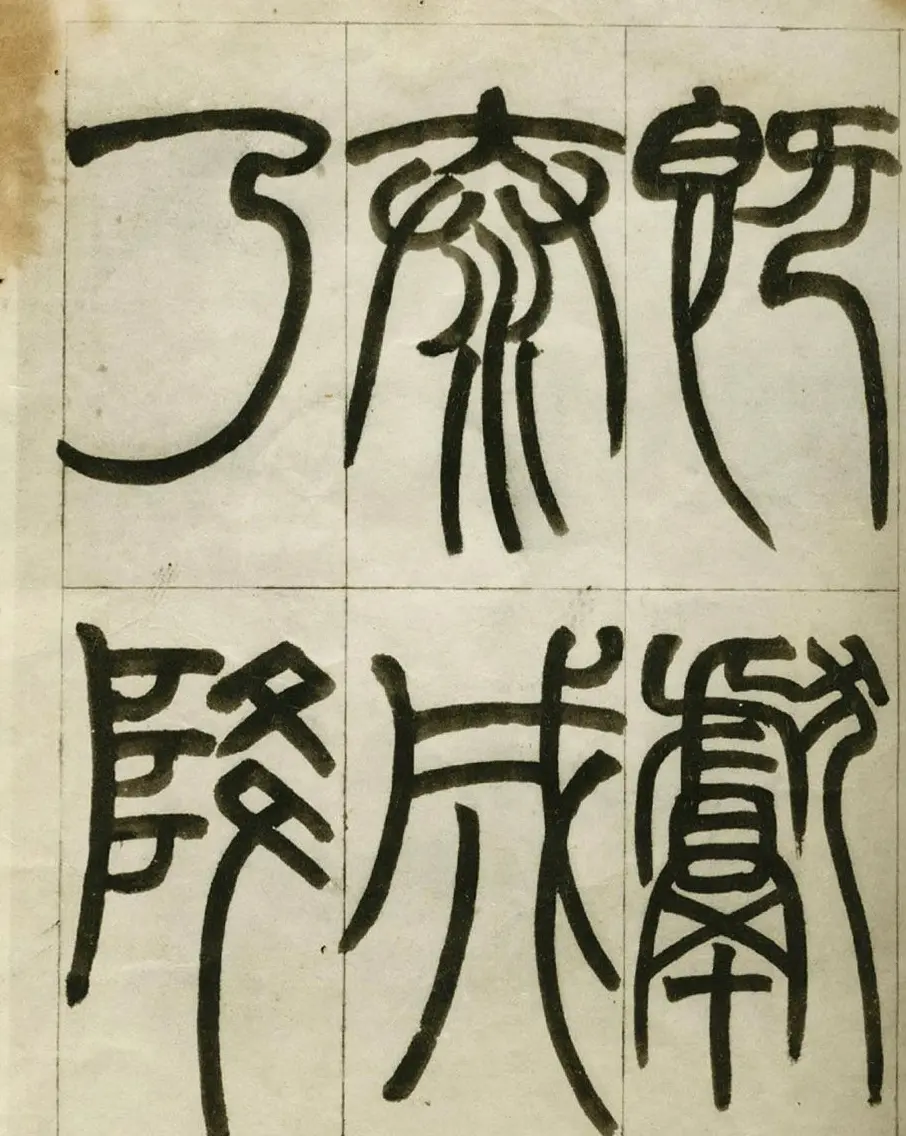 既獻
泰成
乃降